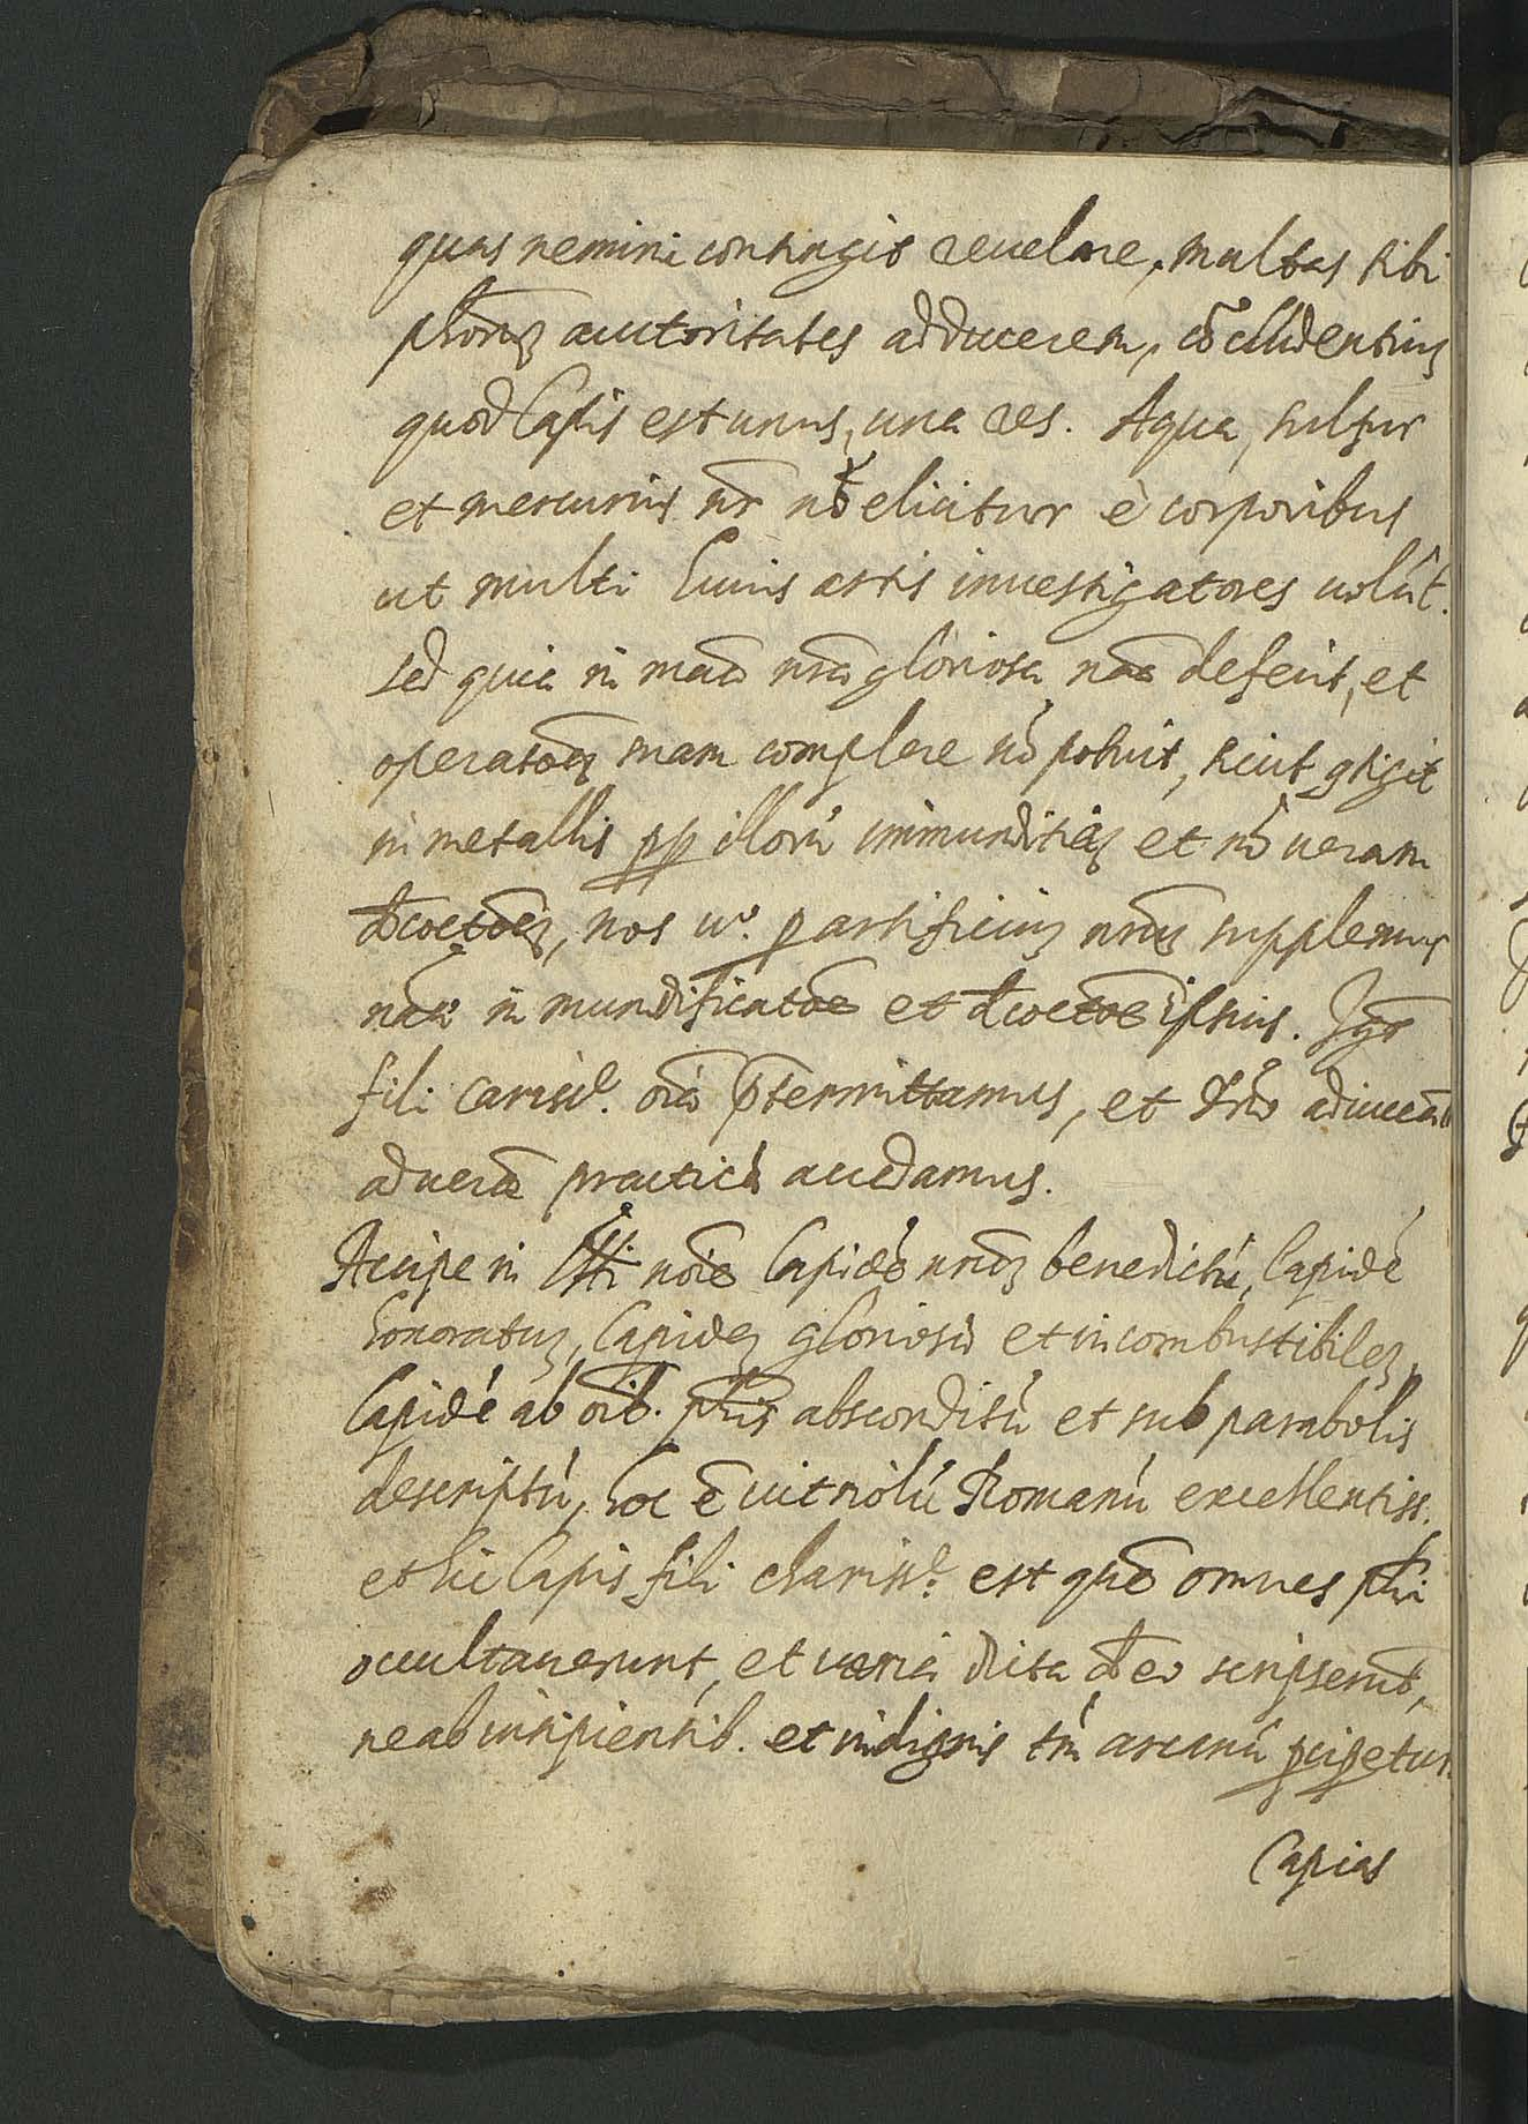 quas nemini contingit reuelare, multas tibi
phõrũ auctoritates adducerem, cõcludentiũ
quod lapis est unus, una res. Aqua, sulfur
et mercurius nr̃ nõ elicitur è corporibus
ut multi huius artis inuestigatores uolũt.
sed quia in mã nrã gloriosa nãe defecit, et
operatoẽ suam complere nõ potuit, sicut gtigit
in metallis pp illorũ immunditiã et nõ ueram
decoctoẽ, nos uº. p artificiũ nrũ supplemus
nãe in mundificatoẽ et decoctoẽ ipsius. Igr̃
fili cariss.e oĩa p̃termittamus, et Dño adiuuãte
ad uerã practicã accedamus.
Accipe in nõie lapidẽ nrũ benedictũ, lapidẽ
honoratũ, lapidẽ gloriosũ et incombustibilẽ,
lapidẽ ab oĩb. phis absconditũ et sub parabolis
descriptũ, hoc ẽ uitriolũ Romanũ excellentiss.
et hic lapis fili chariss.e est quẽ omnes phi
occultauerunt, et uaria dicta de eo scripserũt,
ne ab insipientib. et indignis tm̃ arcanũ pcipetur.
Capias